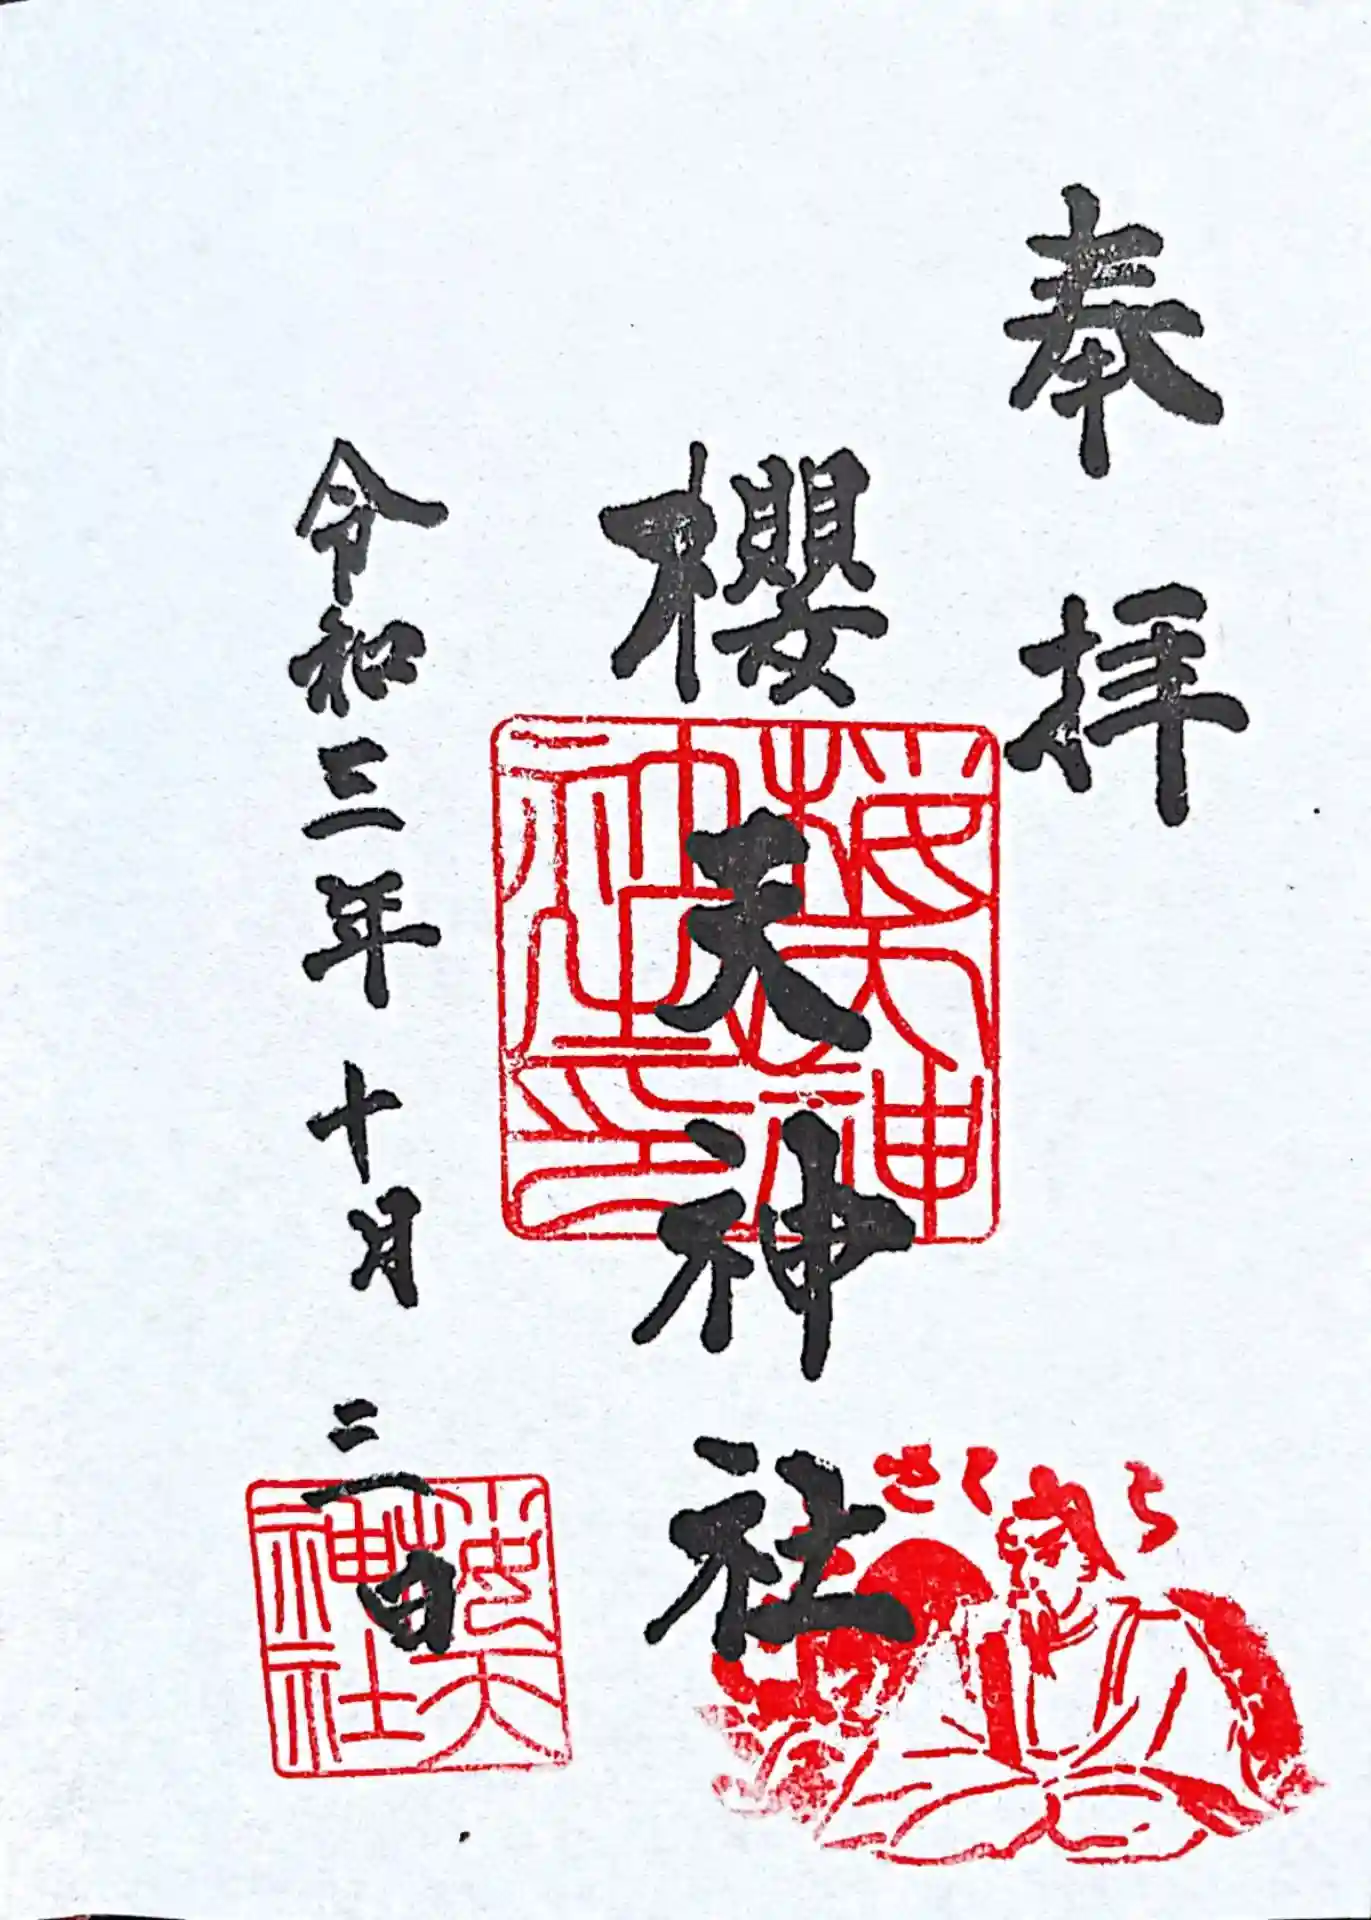 奉拝
櫻天神社
令和三年十月三日
桜天神
社印
さくら
桜天
神社